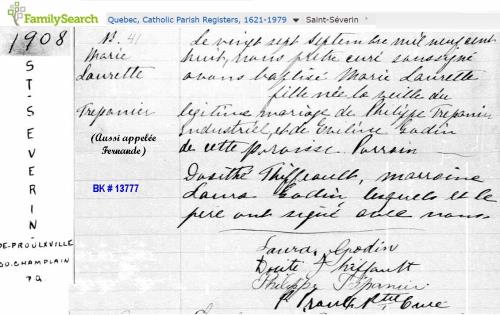 FamilySearch Quebec, Catholic Parish Registers, 1621-1979 Saint-Séverin
1908
ST-SEVERIN
DE-PROULXVILLE
CO.CHAMPLAIN
B. 41
Marie
Laurette
Trepanier
(Aussi appelée
Fernande)
BK # 13777
Le vingt sept Septembre mil neuf cent
huit, nous prêtre curé soussigné
avons baptisé Marie Laurette
fille née la veille du
légitime mariage de Philippe Trepanier
Industriel, et de Eveline Godin
de cette paroisse Parrain
Dosithé Thiffeault, marraine
Laura Godin lesquels et le
père ont signé avec nous
Laura Godin
Thiffault
Philippe Trépanier
Ptre Curé